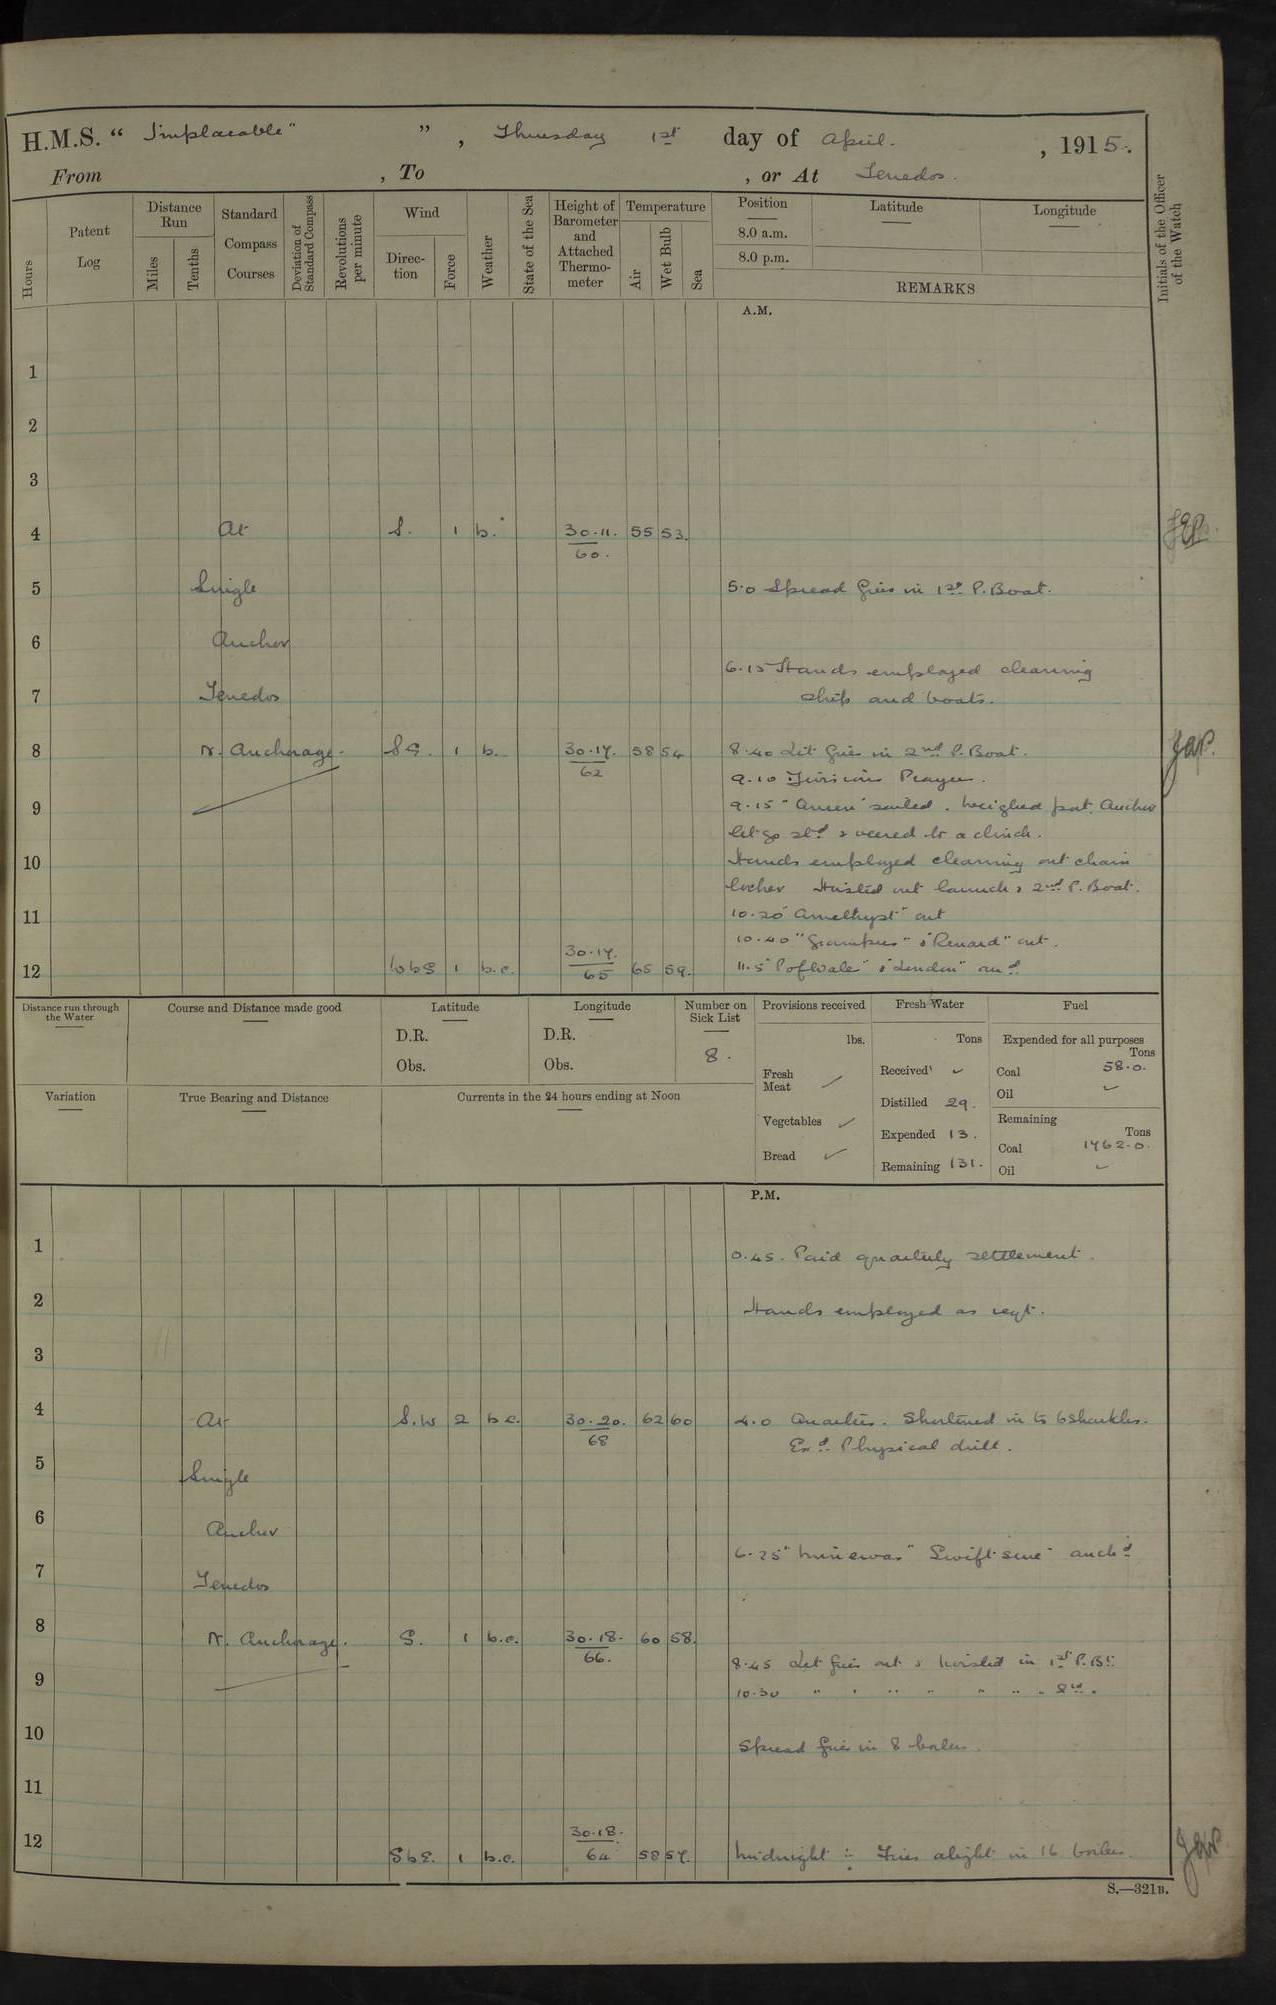 H.M.S. “ Implacable ” , Thursday 1st day of April. , 1915.
From , To , or At Tenedos.
Hours
Patent Log
Distance Run
Miles
Tenths
Standard Compass Courses
Deviation of Standard Compass
Revolutions per minute
Wind
Direction
Force
Weather
State of the Sea
Height of Barometer and Attached Thermometer
Temperature
Air
Wet Bulb
Sea
Position Latitude Longitude
8.0 a.m.
8.0 p.m.
REMARKS
Initials of the Officer of the Watch
A.M.
1
2
3
4 At S. 1 b. 30.11. 60. 55 53.
5 Single 5.0 Spread fires in 1st P. Boat.
6 Anchor
6.15 Hands employed cleaning
7 Tenedos ship and boats.
8 N. Anchorage. SE. 1 b. 30.17. 62 58 54 8.40 Lit fires in 2nd P. Boat.
9.10 Divisions Prayers.
9 9.15 " sailed. Weighed port Anchor
let go stbd & veered to a clinch.
10 Hands employed cleaning out chain
locker Hoisted out launch & 2nd P. Boat.
11 10.20 "Amethyst" out
10.40 "Grampus" & "Renard" out.
12 WbS 1 b.c. 30.17. 65 65 59. 11.5 "P of Wales" & "London" and
Distance run through the Water
Course and Distance made good
Latitude
D.R.
Obs.
Longitude
D.R.
Obs.
Number on Sick List
8.
Provisions received
lbs.
Fresh Meat
Vegetables
Bread
Fresh Water
Tons
Received
Distilled 29.
Expended 13.
Remaining 131.
Fuel
Expended for all purposes
Tons
Coal 58.0.
Oil
Remaining
Tons
Coal 1762.0.
Oil
Variation
True Bearing and Distance
Currents in the 24 hours ending at Noon
P.M.
1 0.45. Paid quarterly settlement.
2 Hands employed as reqt.
3
4 At S.W 2 b.c. 30.20. 68 62 60 4.0 Quarters. Shortened in to 6 shackles.
Exd Physical drill.
5 Single
6 Anchor
6.25 "Minerva" "Swiftsure" anchd
7 Tenedos
8 N. Anchorage. S. 1 b.c. 30.18. 66. 60 58.
8.45 Let fires out & hoisted in 1st P.Bt.
9 10.30 " " " " " " " 2nd "
10 Spread fires in 8 boilers.
11
12 SbE. 1 b.c. 30.18. 64 58 57. Midnight :- Fires alight in 16 boilers.
S.—321B.